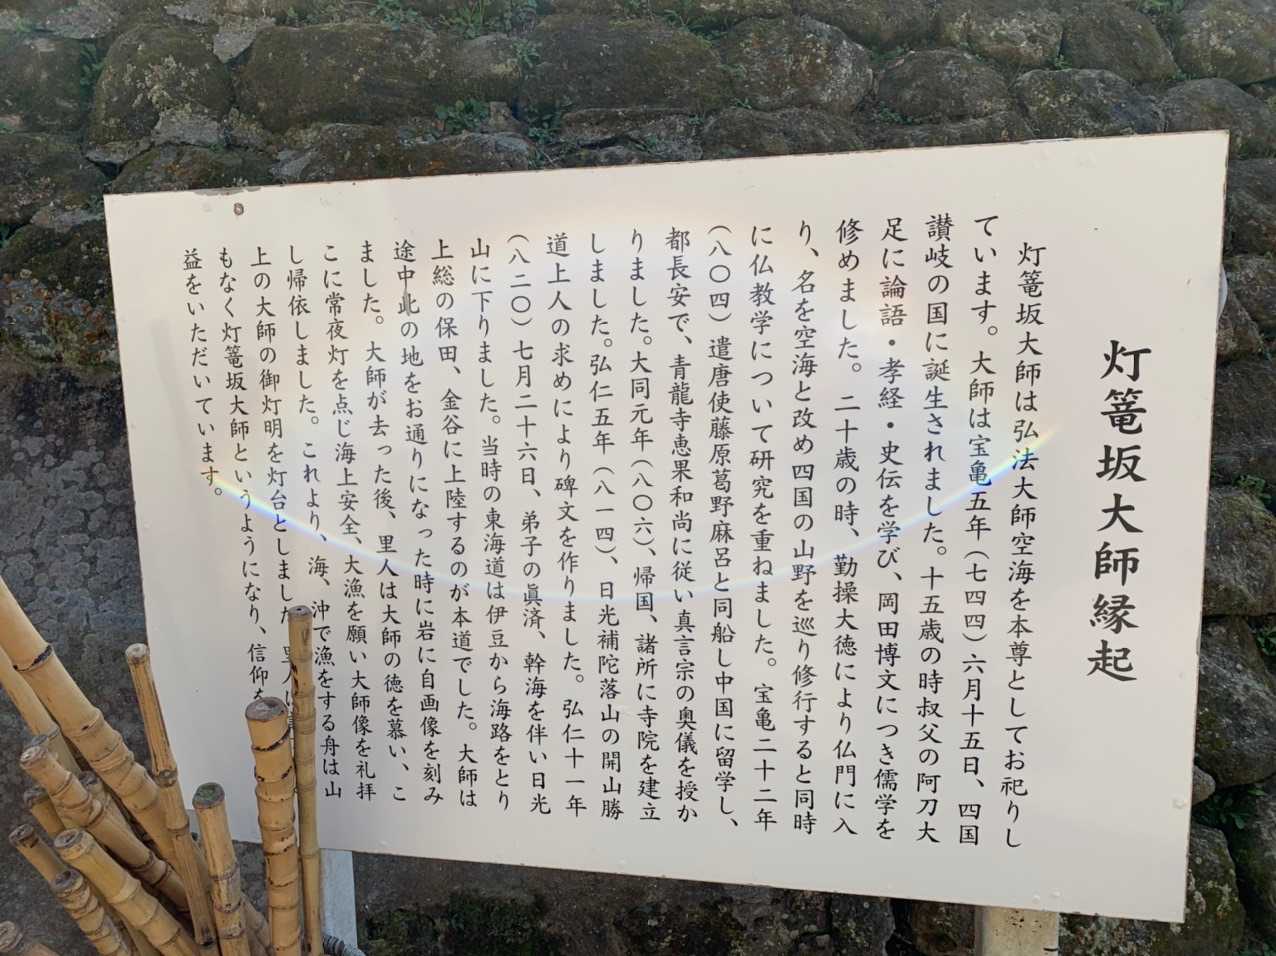 灯篭坂大師縁起
灯篭坂大師は弘法大師空海を本尊としてお祀りし
ています。大師は宝亀五年(七四四)六月十五日、四国
讃岐の国に誕生されました。十五歳の時叔父の阿刀大
足に論語・孝経・史伝を学び、岡田博文につき儒学を
修めました。二十歳の時、勤操大徳により仏門に入
り、名を空海と改め四国の山野を巡り修行すると同時
に仏教学について研究を重ねました。宝亀二十二年
(八〇四)遣唐使藤原葛野麻呂と同船し中国に留学し、
都長安で、青龍寺恵果和尚に従い真言宗の奥儀を授か
りました。大同元年(八〇六)、帰国、諸所に寺院を建立
しました。弘仁五年(八一四)、日光補陀落山の開山勝
道上人の求めにより碑文を作りました。弘仁十一年
(八二〇)七月二十六日、弟子の眞済、幹海を伴い日光
山に下りました。当時の東海道は伊豆から海路をとり
上総の保田、金谷に上陸するのが本道でした。大師は
途中此の地をお通りになった時に岩に自画像を刻み
ました。大師が去った後、里人は大師の徳を慕い、こ
こに常夜灯を点じ海上安全、大漁を願い大師像を礼拝
し帰依しました。これより、海、沖で漁をする舟は山
上の大師の御灯明を灯台としました
もなく灯篭坂大師というようになり、信仰を
益をいただいています。